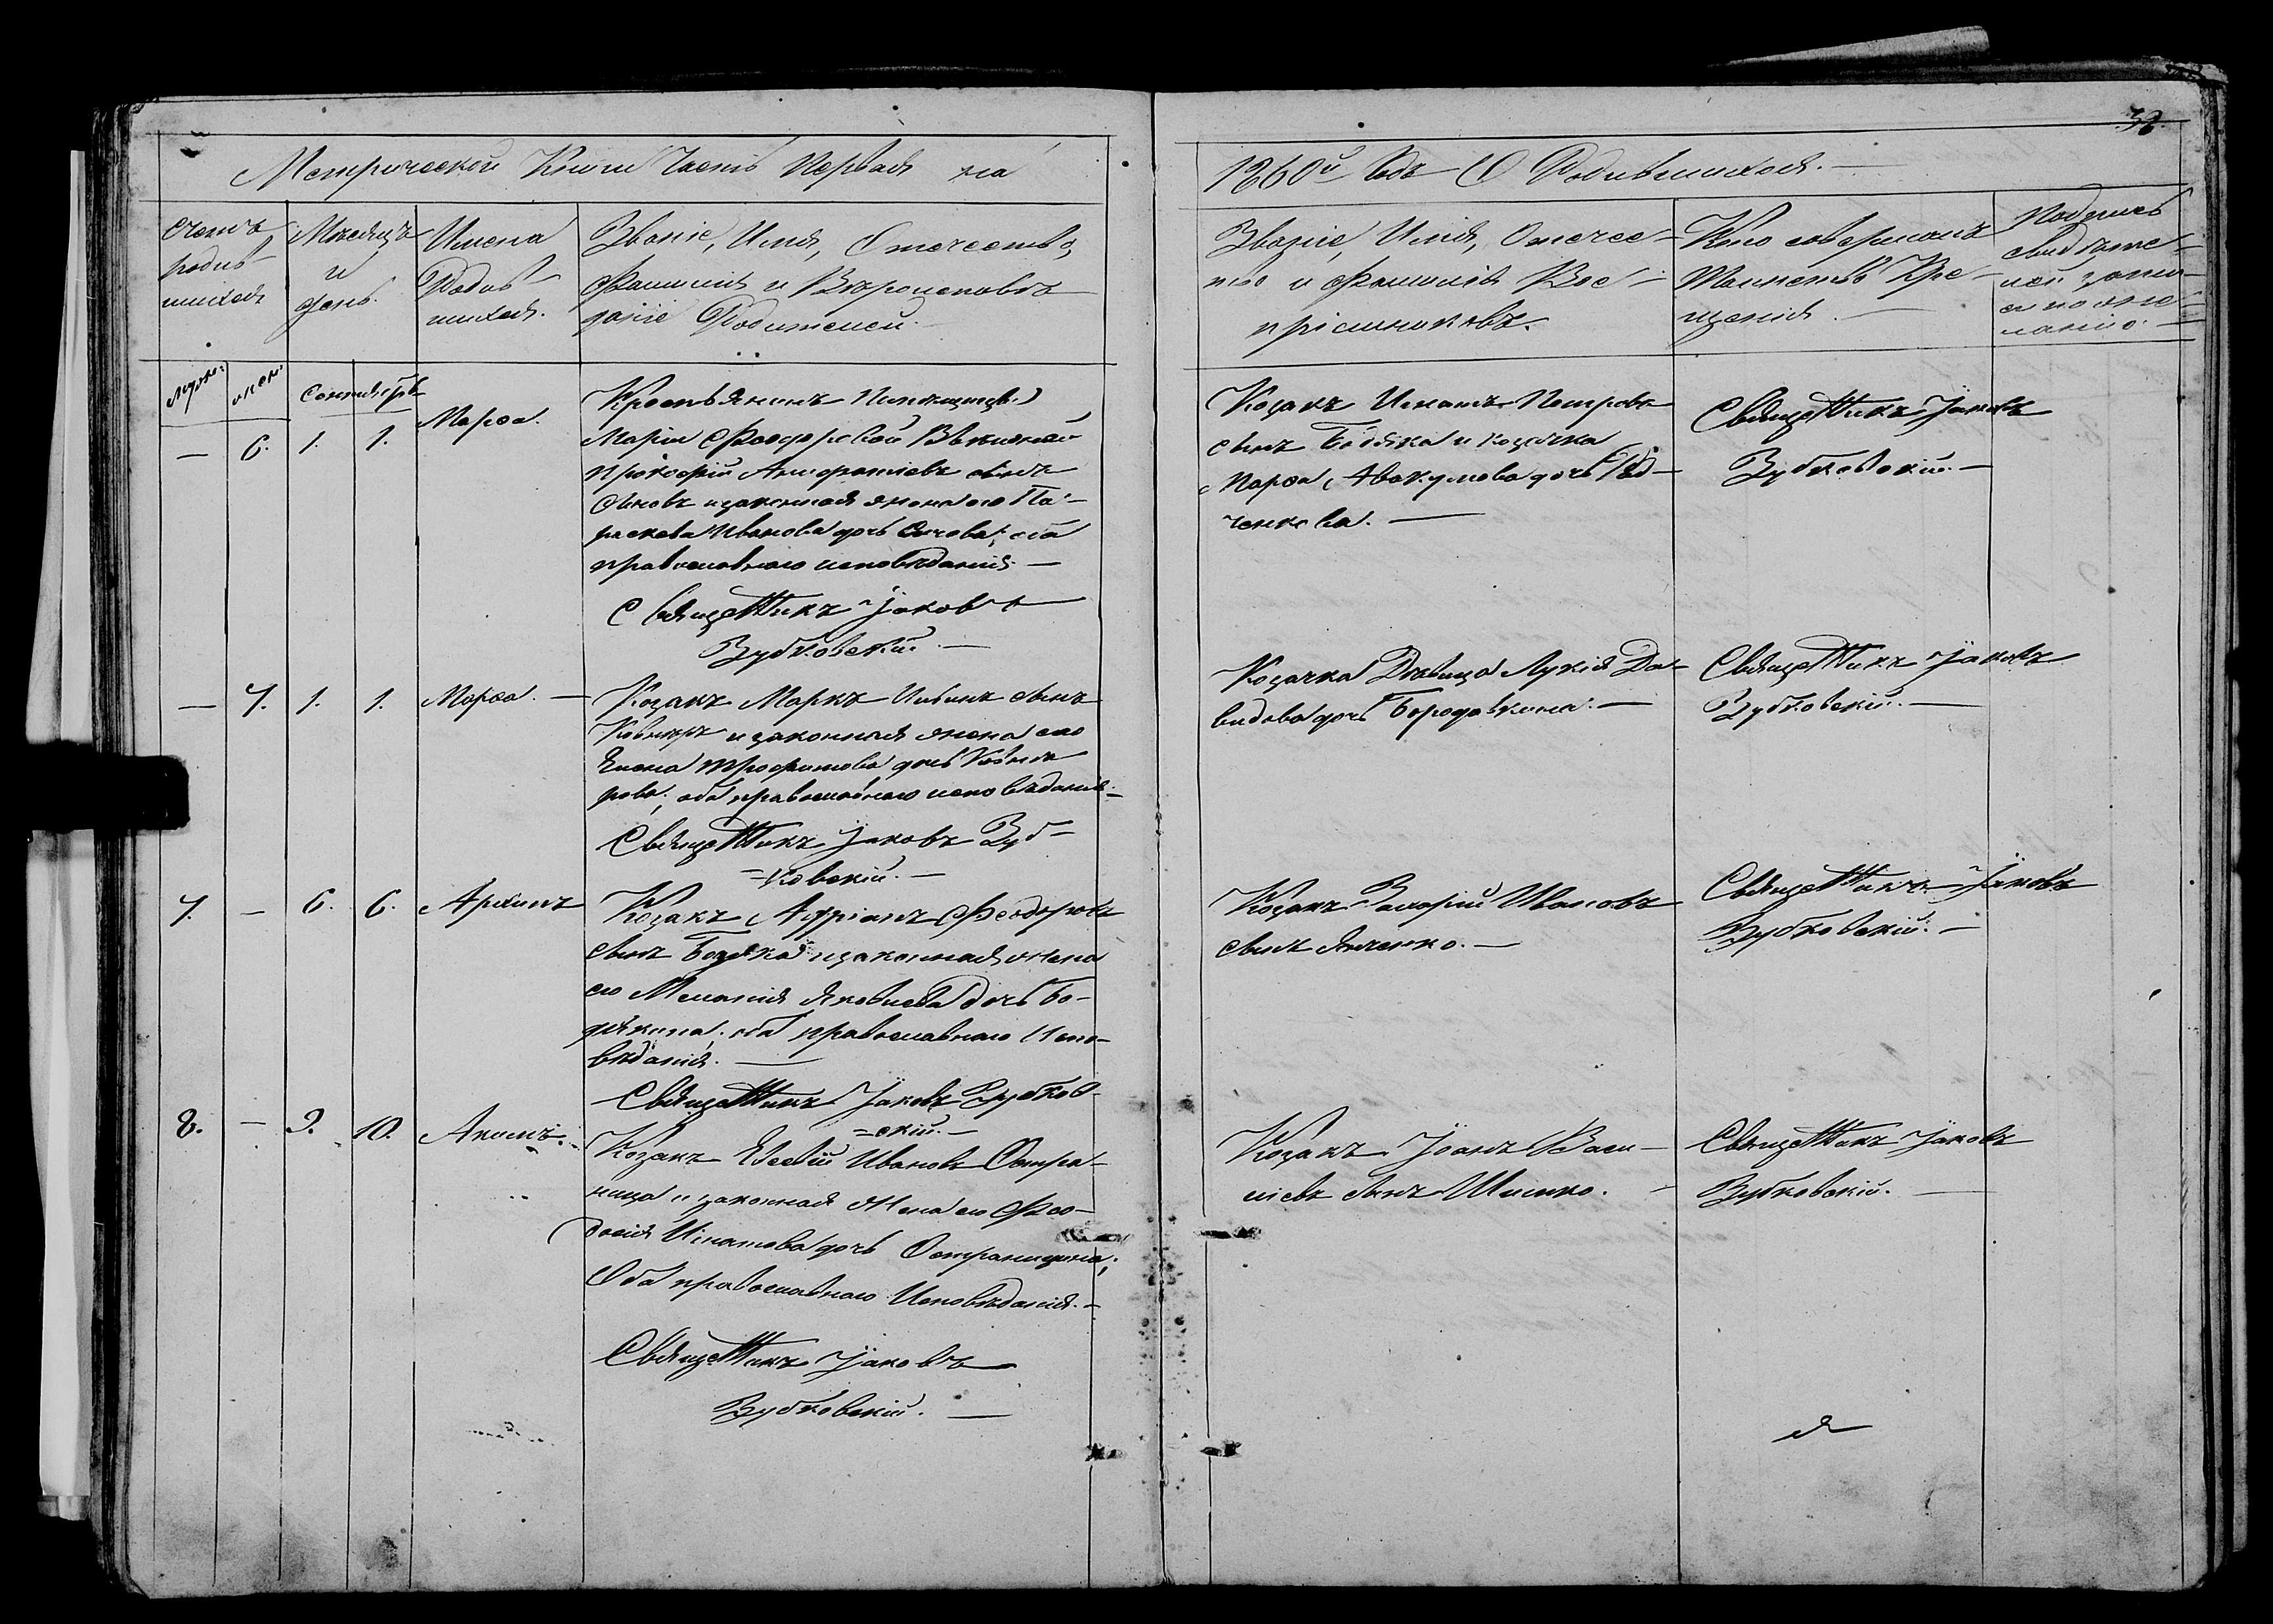 32.
Метрической Книги Часть Первая на
1860й Годъ О Родившихся.
Счетъ родив-
шихся
Мѣсяцъ
и
день.
Имена
Родив-
шихся.
Званіе, Имя, Отечество,
Фамилія и Вѣроисповѣ
даніе Родителей.
Званіе, Имя, Отечес-
тво и Фамилія Вос-
пріемниковъ.
Кто совершалъ
Таинство Кре-
щенія.
Подпись
свидѣте-
лей запи-
си по же-
ланію.
муж.
жен.
Сентябрь
— 6. 1. 1.
Марѳа.
Крестьянинъ помѣщицы
Маріи Феодоровой
Прокофій сынъ
и законная жена его Па-
раскева Иванова дочь оба
православнаго исповѣданія. —
Священникъ Іаковъ
Зубковскій. —
Козакъ Игнатъ Петровъ
сынъ Бодяка и козачка
Марѳа Авакумова дочь
ченкова. —
Священникъ Іаковъ
Зубковскій. —
— 7. 1. 1.
Марѳа. —
Козакъ Маркъ сынъ
Ковниръ и законная жена его
Елена Трофимова дочь Ковни
рова; оба православнаго исповѣданія. —
Священникъ Іаковъ Зуб-
=ковскій. —
Козачка Дѣвица Лукія Да-
видова дочь Бородавкина. —
Священникъ Іаковъ
Зубковскій. —
7. — 6. 6.
Архипъ
Козакъ Адріанъ Феодоровъ
сынъ Бодяка и законная жена
его Меланія Яковлева дочь Бо-
дякина; оба православнаго Испо-
вѣданія. —
Священникъ Іаковъ Зубков-
=скій. —
Козакъ Захарій Ивановъ
сынъ Янченко. —
Священникъ Іаковъ
Зубковскій. —
8. — 9. 10.
Акимъ.
Козакъ Евсевій Ивановъ Остра-
ница и законная Жена его Фео-
досія Игнатова дочь Остраницина;
Оба православнаго Исповѣданія. —
Священникъ Іаковъ
Зубковскій. —
Козакъ Іоанъ Васи-
ліевъ сынъ Шишко.
Священникъ Іаковъ
Зубковскій. —
я